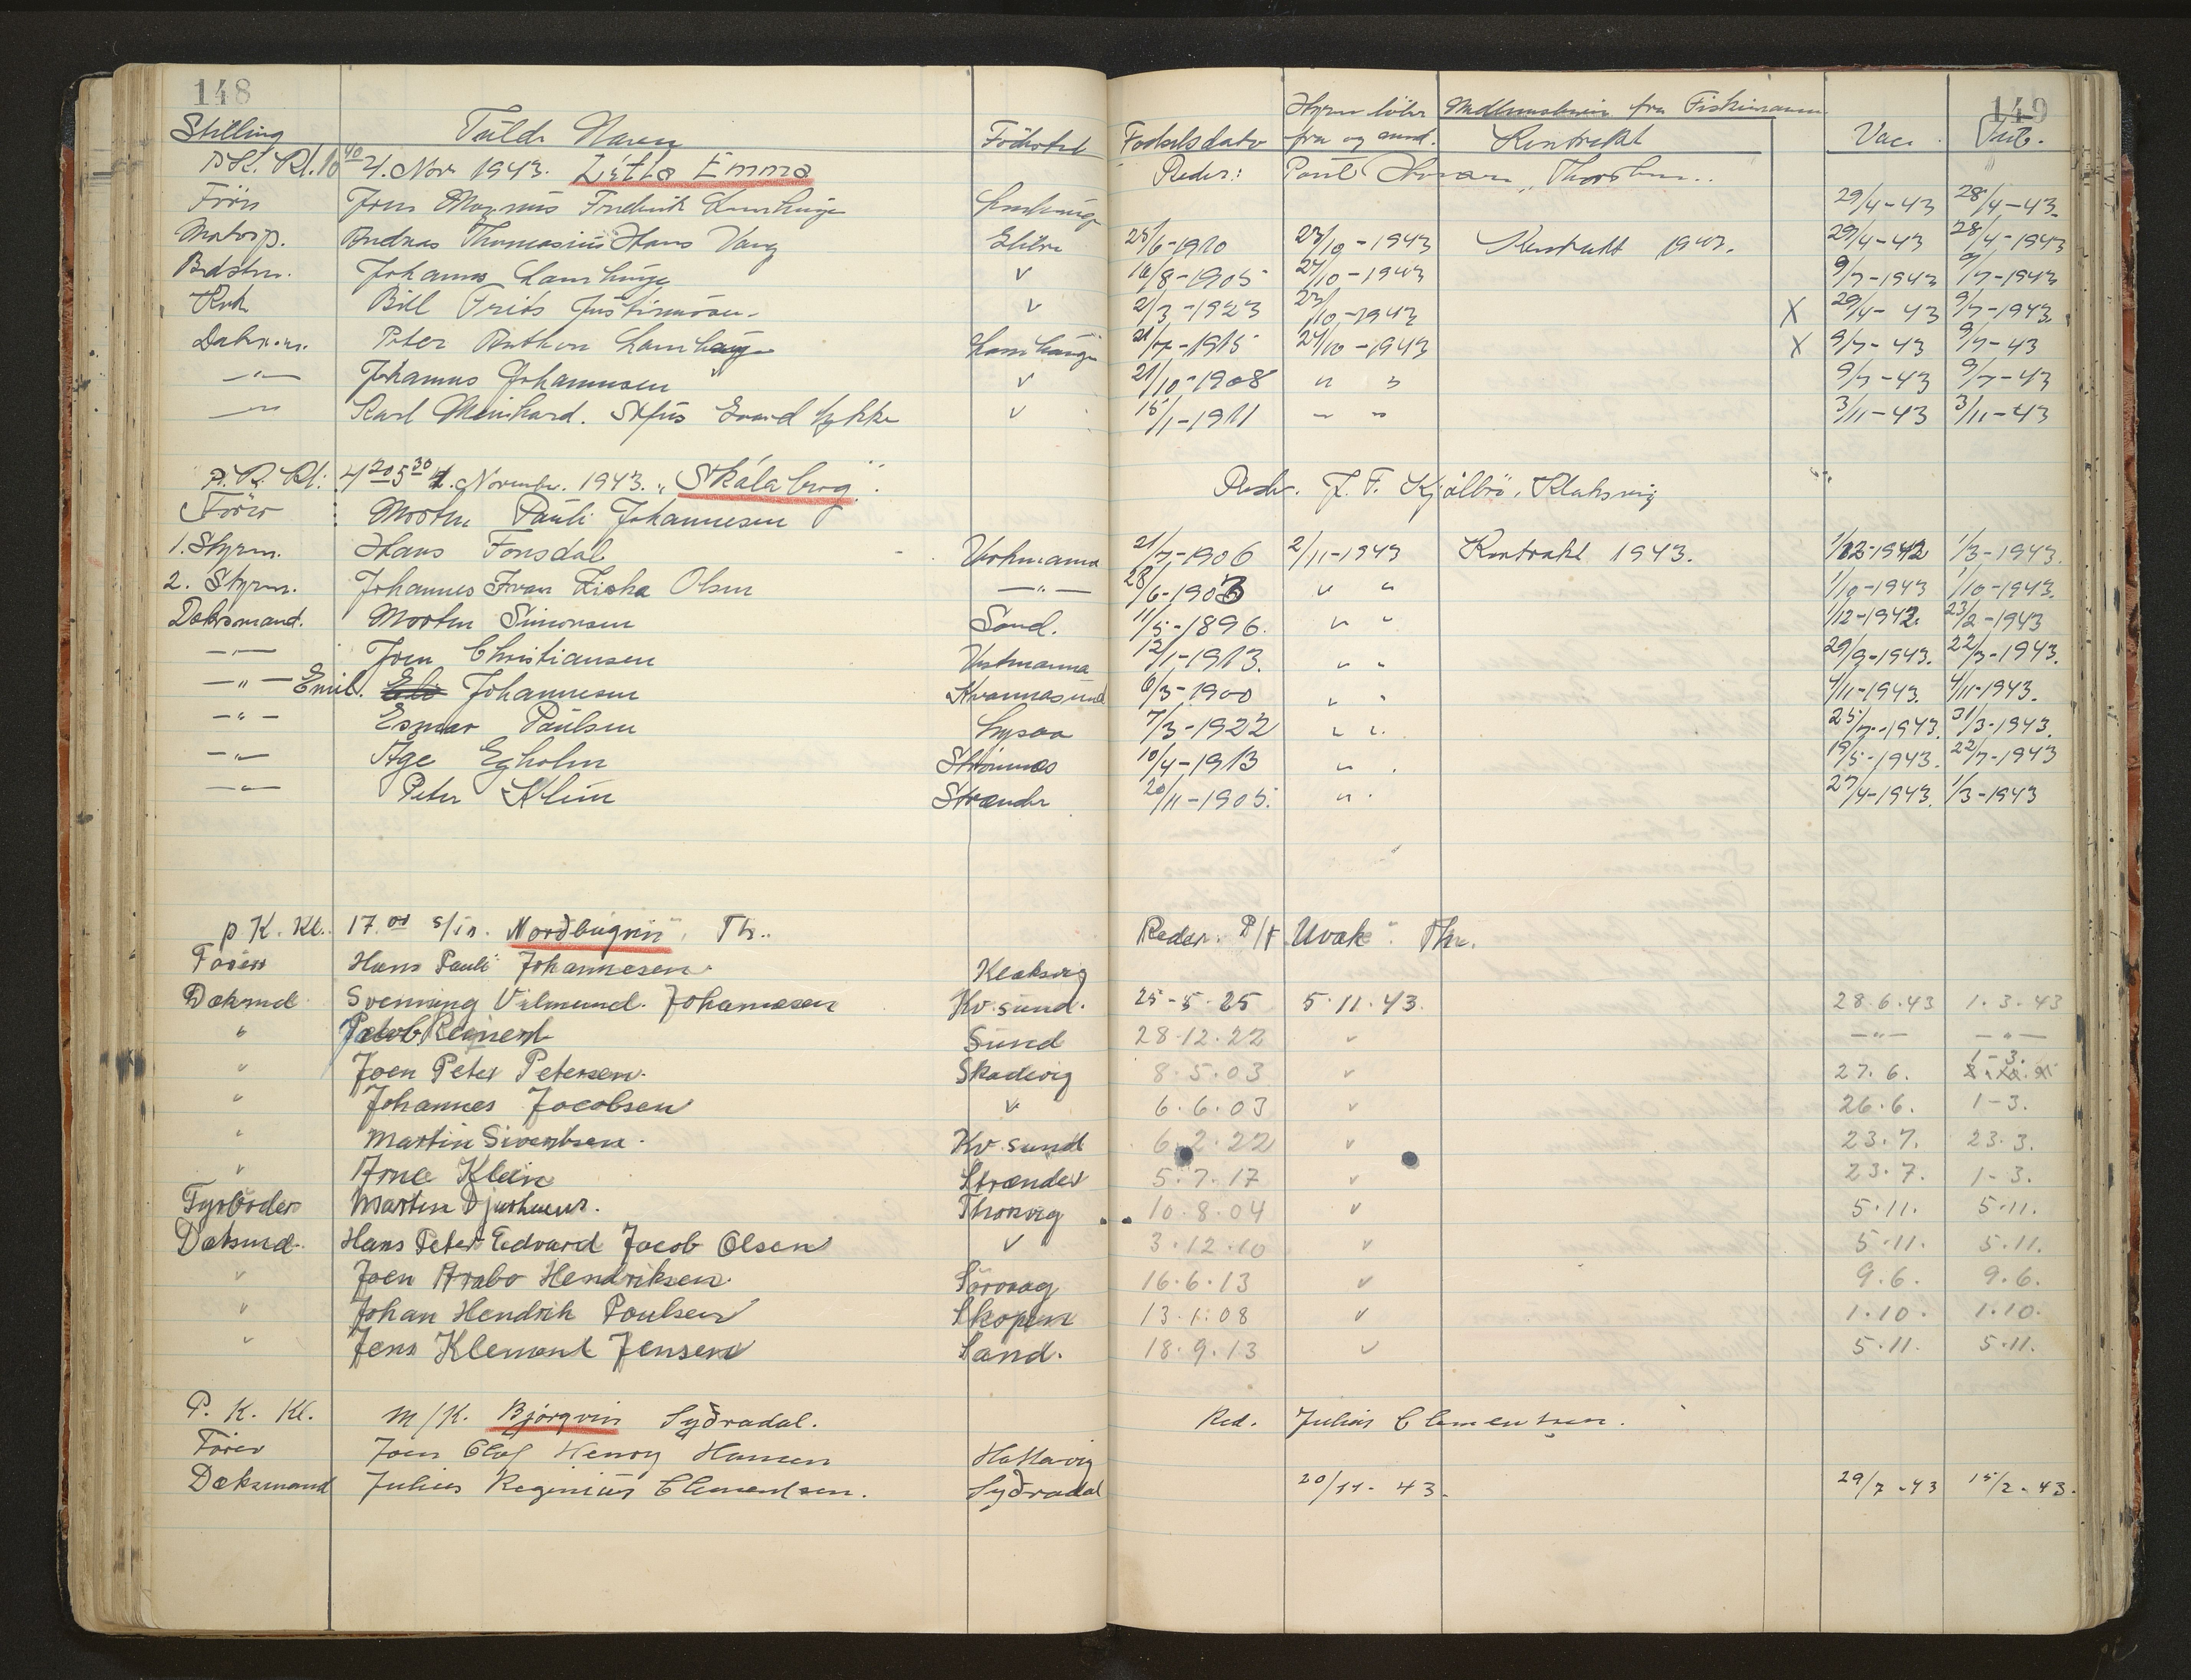 148
149
Stilling Fulde Navn Födested Födselsdato Hyren löber fra og med. Medlemsbevis fra Fiskimann Kontrakt Vac. Tub.
P.K. Kl. 10 40 4. Nov 1943. Litla Emma Reder: Poul Thorshavn
Förer Magnus Frederik Lamhauge Lamhauge 29/4-43 28/4-43.
Motorp. Andreas Thomasius Hans Vang 25/6-1910 23/10-1943 Kontrakt 1943. 29/4-43 28/4-1943
Bedstm. Johannes Lamhauge v 16/8-1905 24/10-1943 9/7-1943 9/7-1943
Kok Bill Frits Justinussen v 2/3-1923 23/10-1943 X 29/4-43 9/7-1943.
Peter Anthon Lamhauge Lamhauge 21/7-1915 24/10-1943 X 9/7-43 9/7-43
—"— Johannes Johannesen v 21/10-1908 " " 9/7-43 9/7-43
—"— Karl Meinhard. Lykke v 15/1-1911 " " 3/11-43 3/11-43
P.K. Kl: 4 20 5 30 4. November. 1943. "Skálaberg". Reder. J. F. Kjölbro, Klaksvig
Förer Morten Pauli Johannesen
1. Styrm. Hans Fonsdal Vestmanna 21/7-1906 2/11-1943 Kontrakt 1943. 1/12-1942 1/3-1943.
2. Styrm. Johannes Ziska Olsen —"— 28/6-1903 " " 1/10-1943 1/10-1943.
Deksmand. Morten Simonsen Sand. 11/5-1896. " " 1/12-1942. 23/2-1943
—"— Joen Christiansen Vestmanna 12/1-1913. " " 29/9-1943. 22/3-1943.
—"— Emil. Johannesen Kvannasund 6/3-1900 " " 4/11-1943. 4/11-1943.
—"— Esmar Paulsen 7/3-1922 " " 25/7-1943. 31/3-1943.
—"— Åge Egholm Strömnes 10/4-1913 " 19/5-1943. 22/7-1943
—"— Peter Klein Strænder 20/11-1905. " 27/4-1943. 1/3-1943
p. K. Kl. 17.00 s/sn. Nordbugvin, Th.. Reder. P/f Uvak Thr.
Förer Hans Pauli Johannesen. Klaksvig
Dæksmd Svenning Vilmund. Johannesen Kv.sund. 25-5-25 5.11.43. 28.6.43 1.3.43
" Jakob Reinert Sund 28.12.22 v —"— —"—
v Joen Peter Petersen. Skaalevig 8.5.03 v 27.6. 1-3.
" Johannes Jacobsen v 6.6.03 v 26.6. 1-3.
" Martin Sivertsen. Kv.sund 6.2.22 v 23.7. 23.3.
v Arne Klein Strænder 5.7.17 v 23.7. 1-3.
Fyrböder Martin Djurhuus. Thorsvig 10.8.04 v 5.11. 5.11.
Dæksmd. Hans Peter Edvard Jacob Olsen v 3.12.10 v 5.11. 5.11.
v Joen Arabo Hendriksen. Sörvaag 16.6.13 v 9.6. 9.6.
v Johan Hendrik Poulsen Skopen 13.1.08 v 1.10. 1.10.
v Jens Klement Jensen Sand. 18.9.13 v 5.11. 5.11.
P. K. Kl. M/K. Bjørgvin Syðradal. Red. Julius Clementsen.
Förer Joen Olaf Henry Hansen Hattarvig
Dæksmand Julius Reginius Clementsen. Syðradal 20/11-43. 29/7-43 15/2-43.